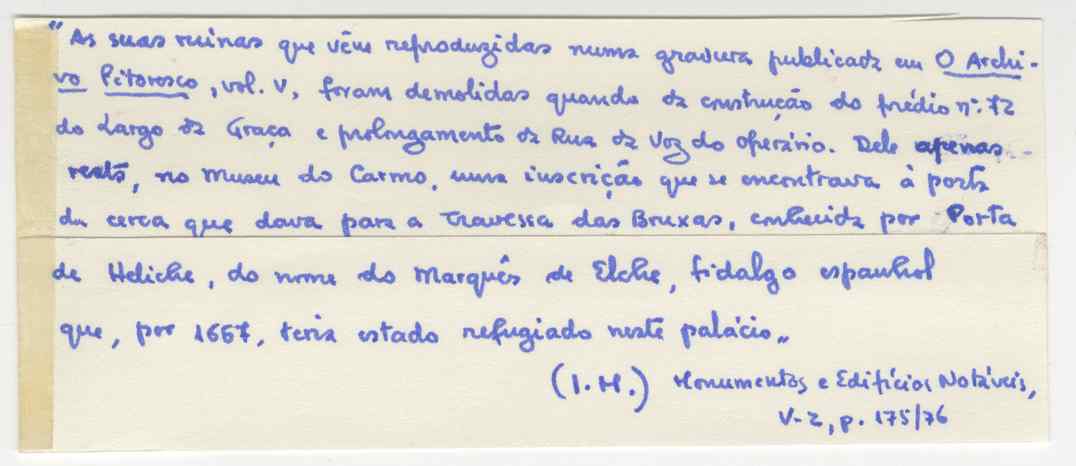 "As suas ruinas que vêm reproduzidas numa gravura publicada em O Archi-
vo Pitoresco, vol. V, foram demolidas quando da construção do prédio nº. 72
do Largo da Graça e prolongamento da Rua da Voz do Operário. Dele apenas
resta, no Museu do Carmo, uma inscrição que se encontrava à porta
da cerca que dava para a Travessa das Bruxas, conhecida por Porta
de Heliche, do nome do Marquês de Elche, fidalgo espanhol
que, por 1667, teria estado refugiado neste palácio„
(I.H.) Monumentos e Edifícios Notáveis,
V-2, p. 175/76